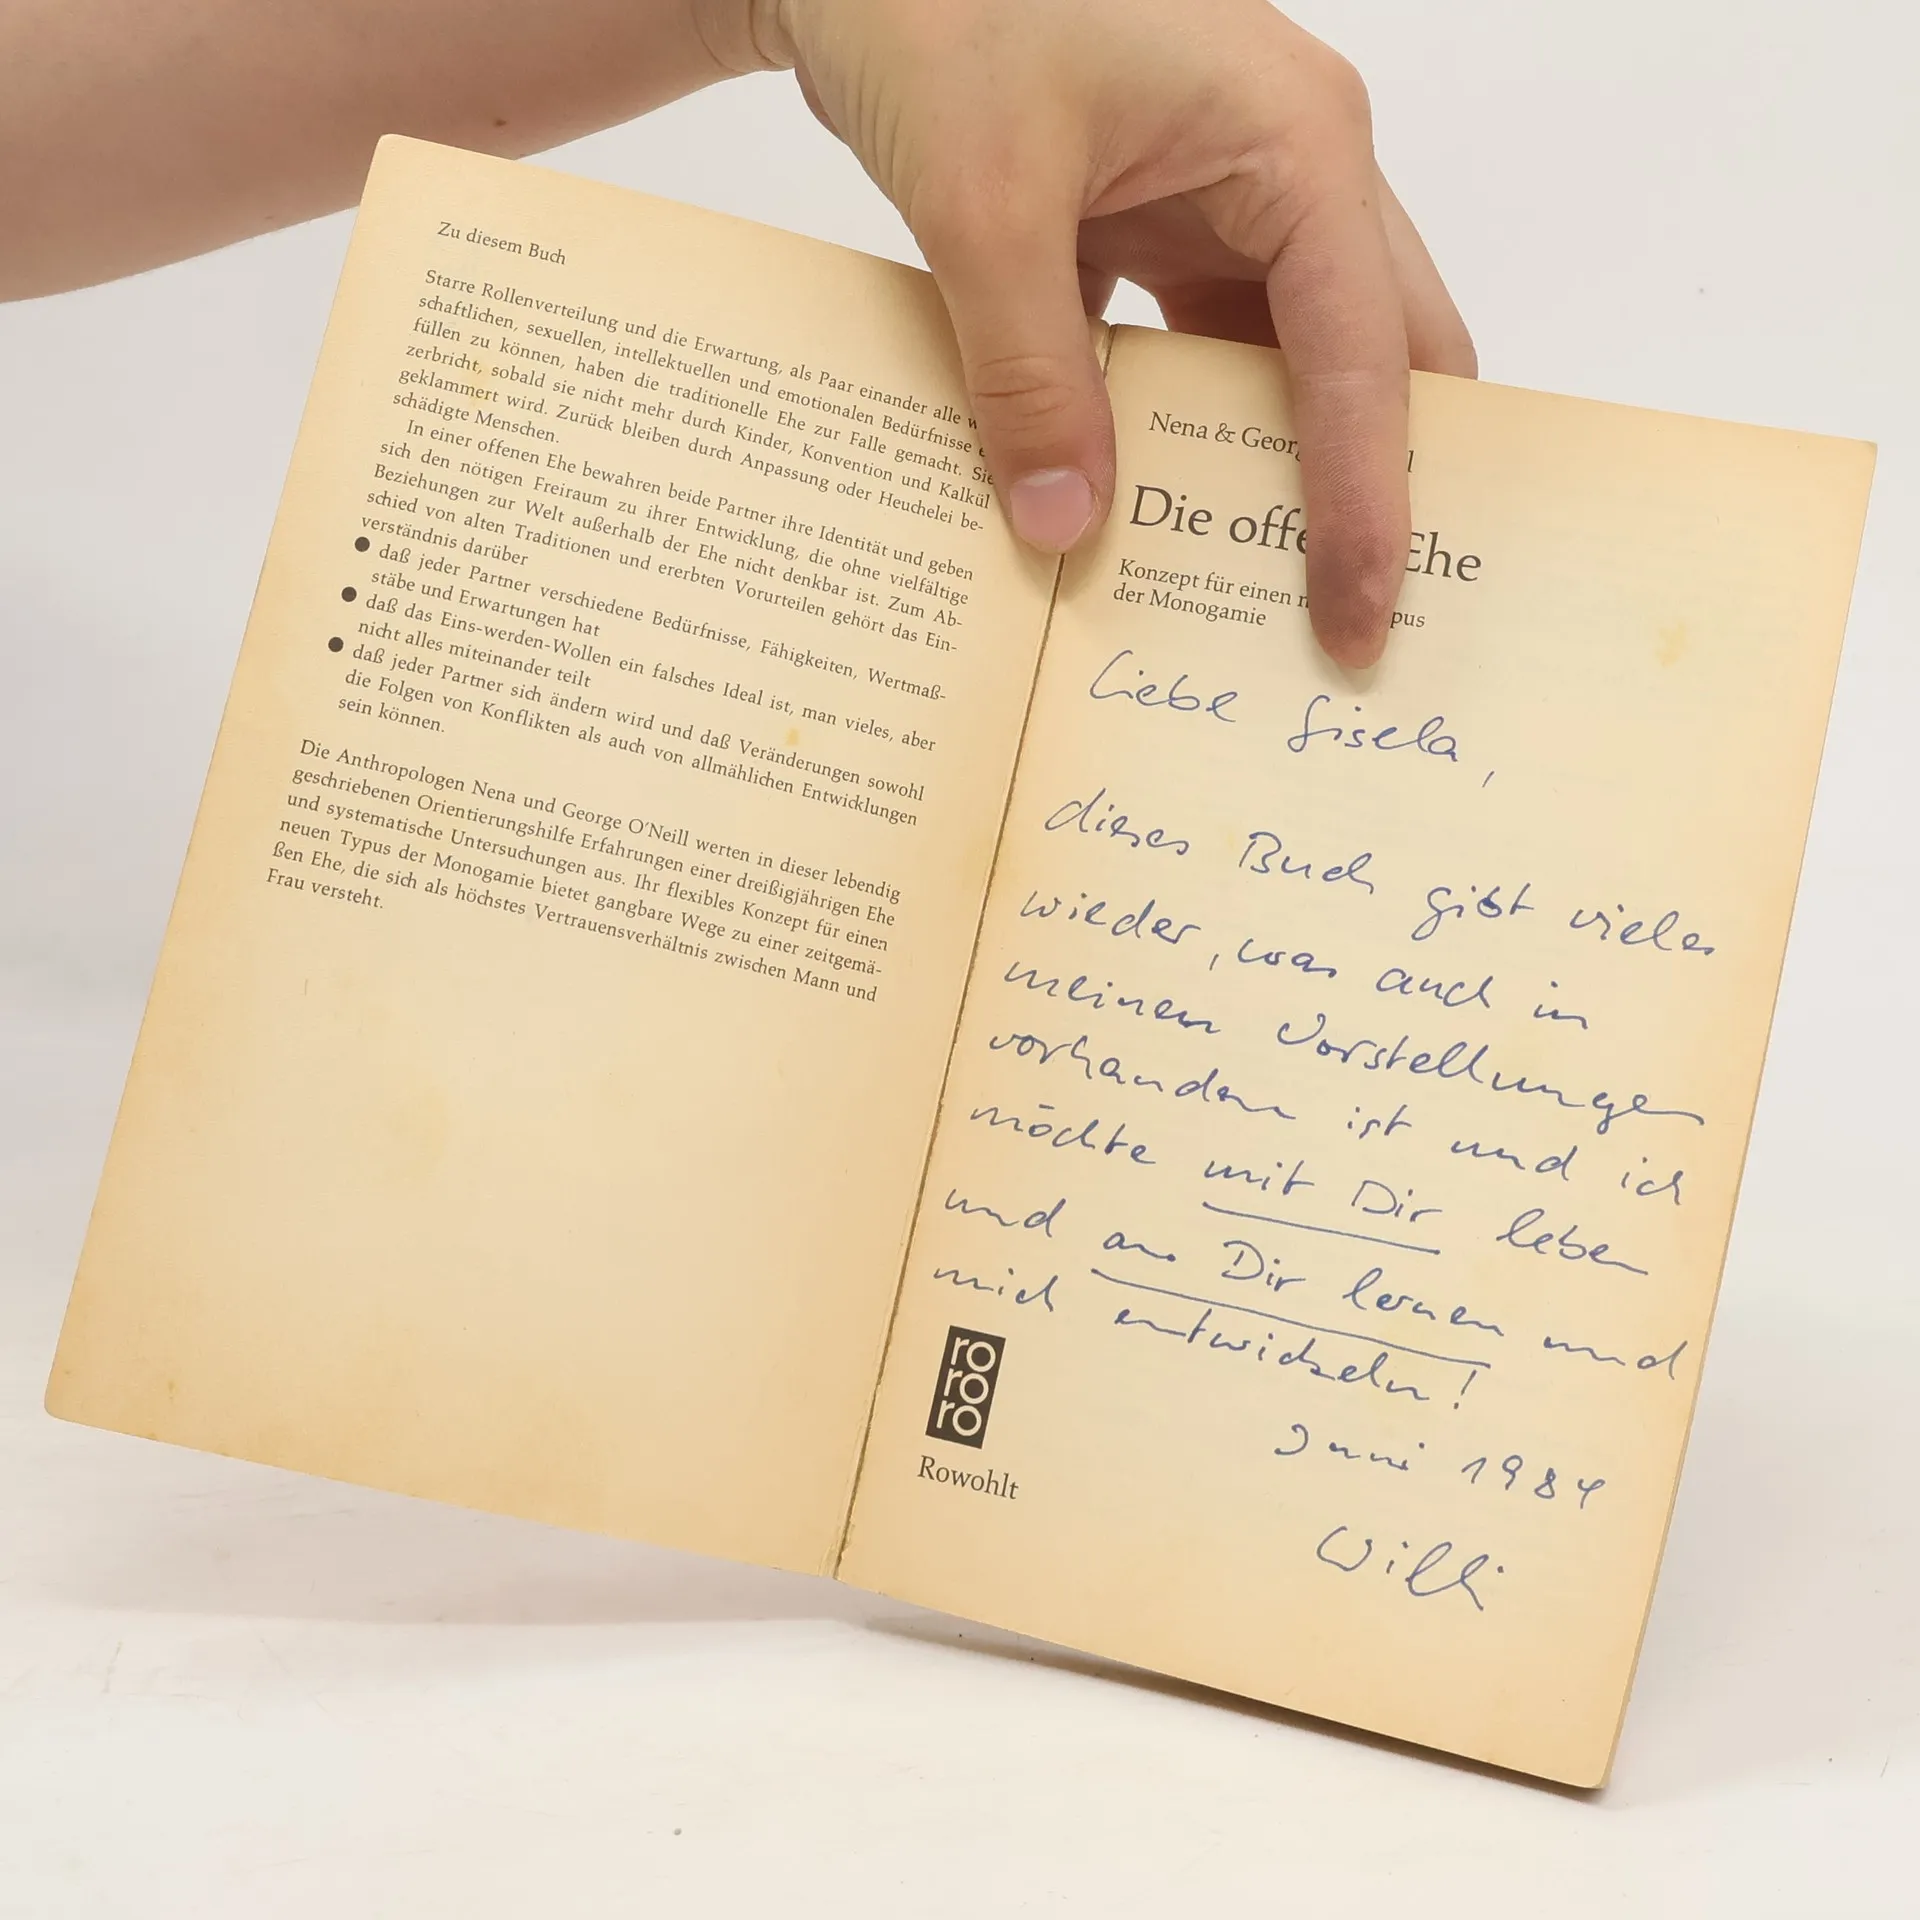 Zu diesem Buch
Starre Rollenverteilung und die Erwartung, als Paar einander alle w
schaftlichen, sexuellen, intellektuellen und emotionalen Bedürfnisse e
füllen zu können, haben die traditionelle Ehe zur Falle gemacht. Sie
zerbricht, sobald sie nicht mehr durch Kinder, Konvention und Kalkül
geklammert wird. Zurück bleiben durch Anpassung oder Heuchelei be-
schädigte Menschen.
In einer offenen Ehe bewahren beide Partner ihre Identität und geben
sich den nötigen Freiraum zu ihrer Entwicklung, die ohne vielfältige
Beziehungen zur Welt außerhalb der Ehe nicht denkbar ist. Zum Ab-
schied von alten Traditionen und ererbten Vorurteilen gehört das Ein-
verständnis darüber
● daß jeder Partner verschiedene Bedürfnisse, Fähigkeiten, Wertmaß-
stäbe und Erwartungen hat
● daß das Eins-werden-Wollen ein falsches Ideal ist, man vieles, aber
nicht alles miteinander teilt
● daß jeder Partner sich ändern wird und daß Veränderungen sowohl
die Folgen von Konflikten als auch von allmählichen Entwicklungen
sein können.
Die Anthropologen Nena und George O'Neill werten in dieser lebendig
geschriebenen Orientierungshilfe Erfahrungen einer dreißigjährigen Ehe
und systematische Untersuchungen aus. Ihr flexibles Konzept für einen
neuen Typus der Monogamie bietet gangbare Wege zu einer zeitgemä-
ßen Ehe, die sich als höchstes Vertrauensverhältnis zwischen Mann und
Frau versteht.
Nena & Geor l
Die offe Ehe
Konzept für einen n pus
der Monogamie
Liebe Gisela,
dieses Buch gibt vieles
wieder, was auch in
meinen Vorstellungen
vorhanden ist und ich
möchte mit Dir leben
und an Dir lernen und
mich entwickeln!
Juni 1984
Willi
ro
ro
ro
Rowohlt